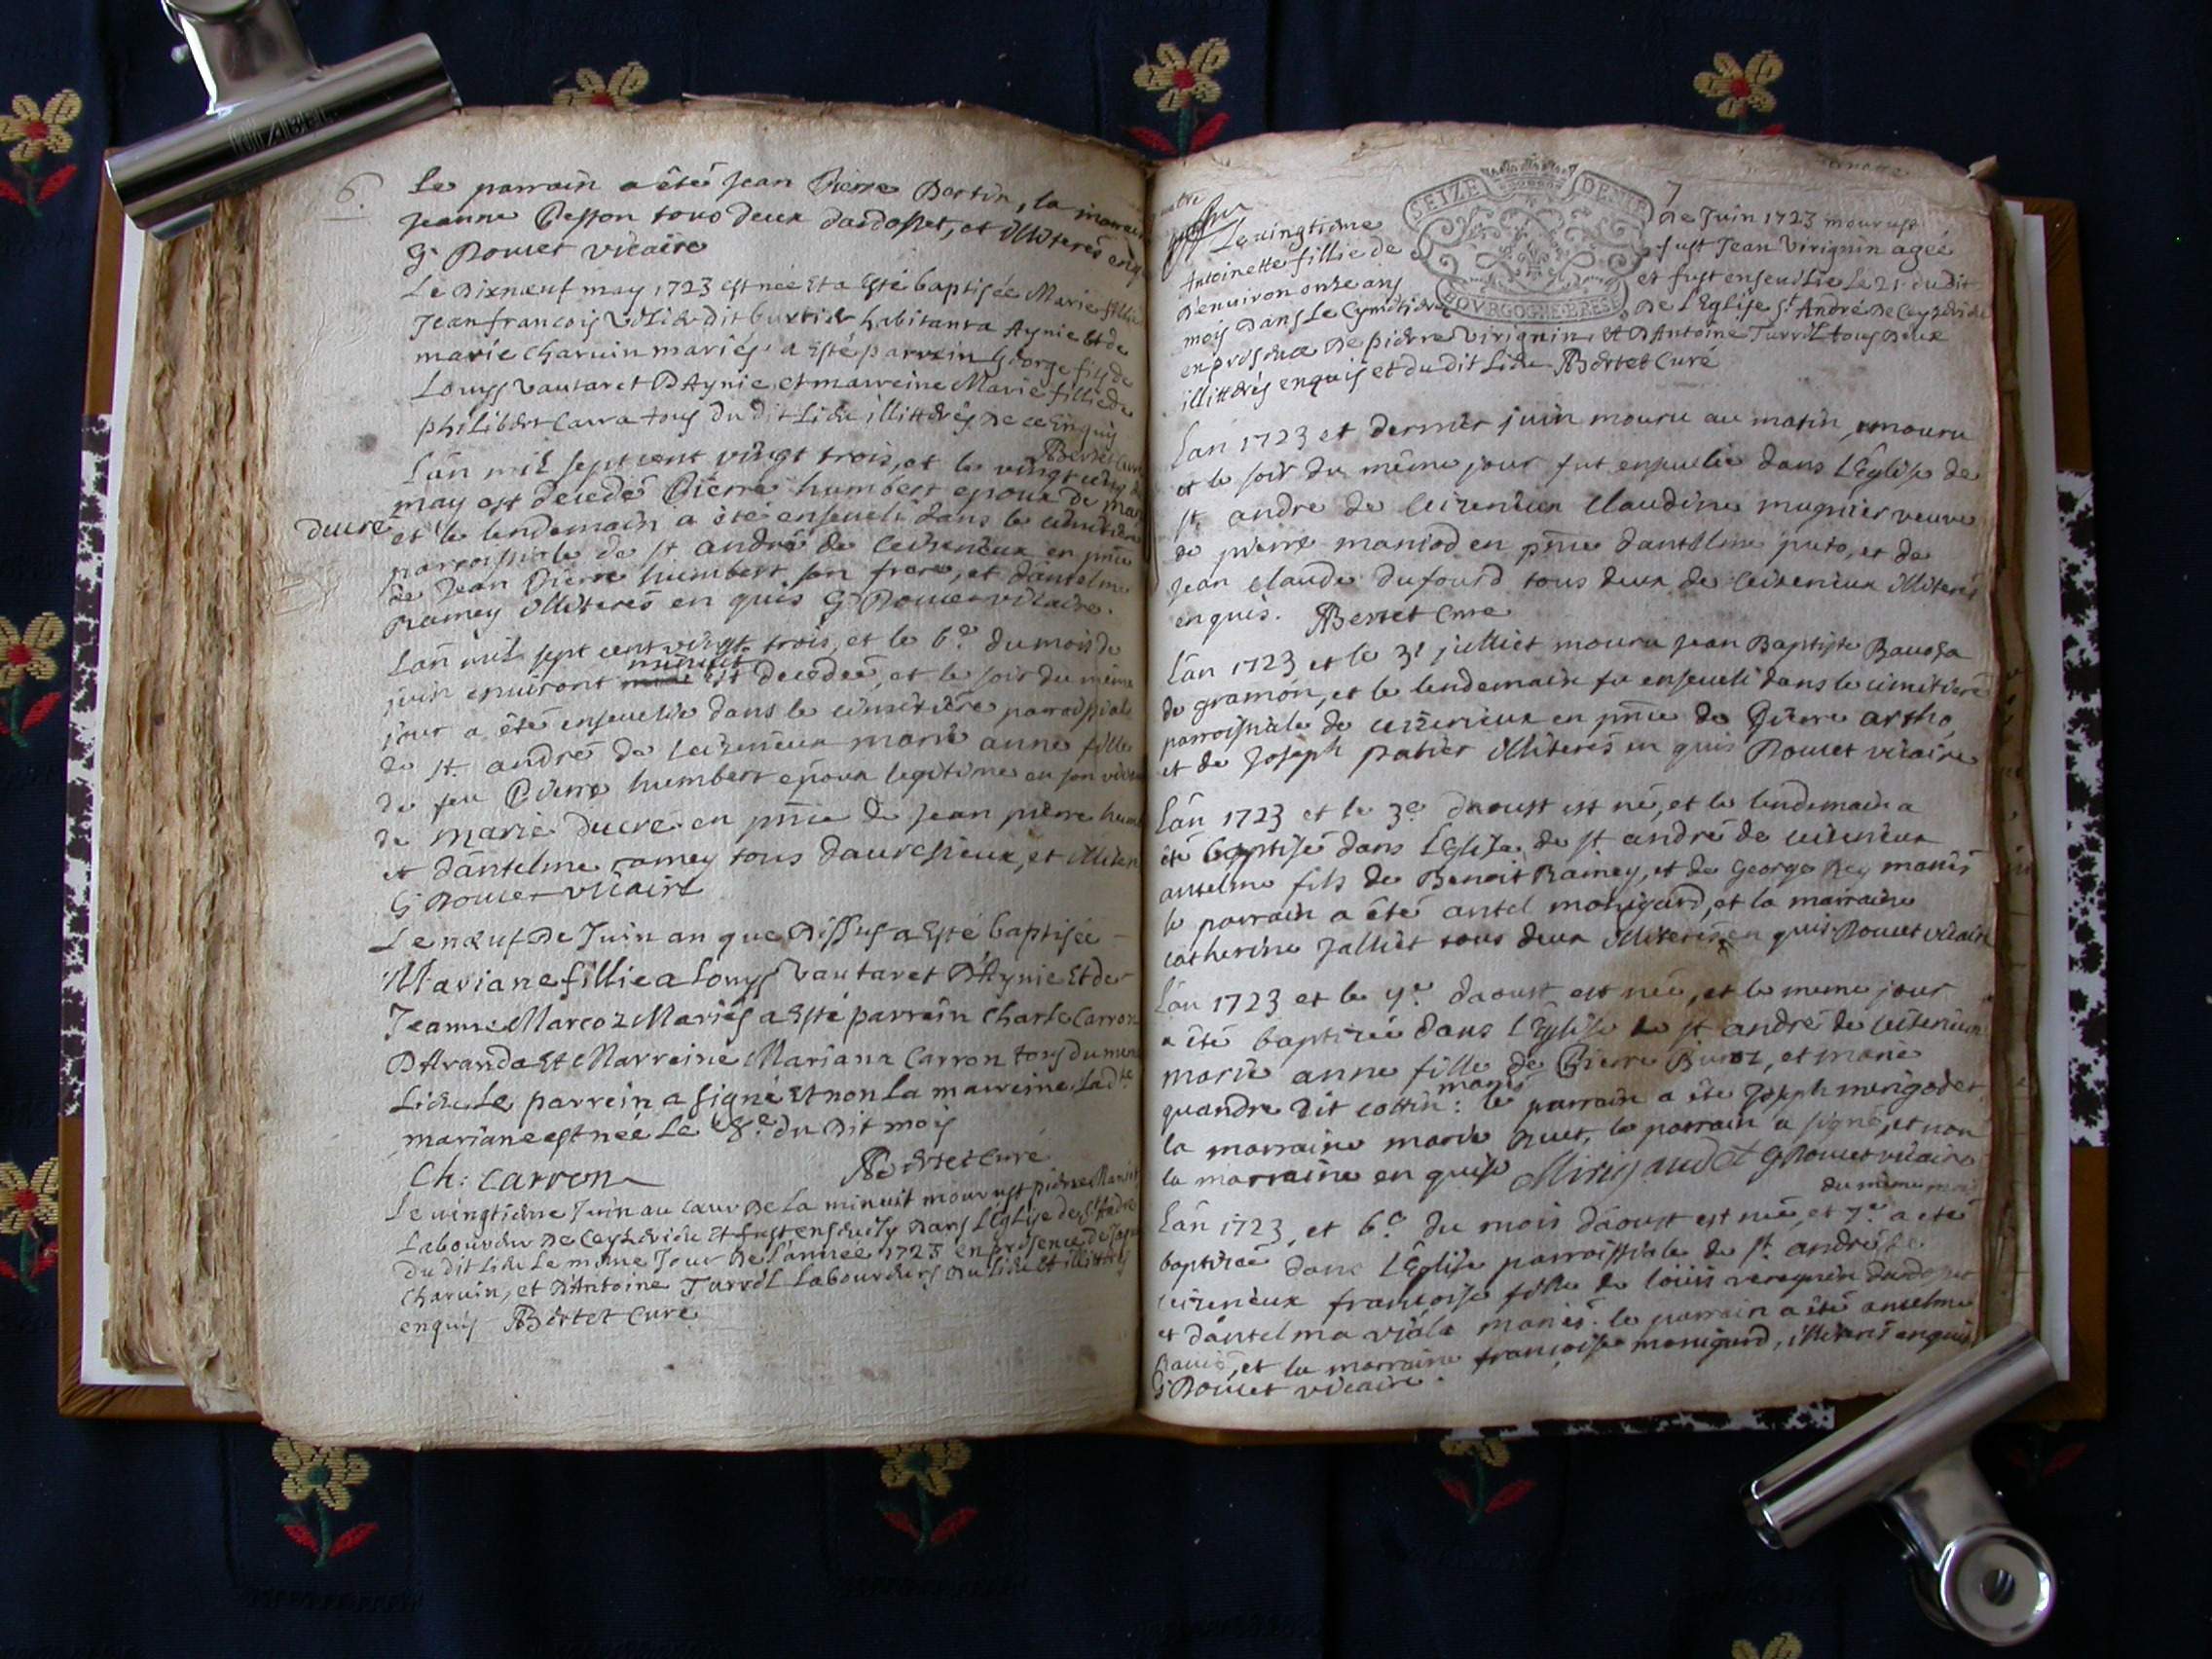 6.
Le parrain a été jean Pierre Bortin, la
jeanne Besson tous deux dardosset, et illiterés enq
G Doucet vicaire
Le Dixneuf may 1723 est née Et a Esté baptisée Marie fillie
Jean françois dit burtier habitant a Aynie Et de
marie charvin mariés a Esté parrein George fils de
Louys Vautaret D'Aynie, et marreine Marie fillie de
philibert Carra tous du dit Lieu illitterés De ce Enquis
Bertet Curé
L'an mil sept cent vingt trois, et le vingt cinq de
may est decedé Pierre humbert epoux de mar
ducre et le lendemain a été enseveli dans le cimitiere
parroissiale de st andré de Ceizerieux en pñce
de Jean Pierre humbert son frere, et dantelme
Ramey illiterés en quis G Doucet vicaire.
L'an mil sept cent vingt trois, et le 6e du mois de
juin environt minuit est decedée, et le soir du même
jour a été ensevelie dans le cimitière parroissiale
de st. andré de Ceizerieux marie anne fille
de feu Pierre humbert epoux legitime en son viva
de marie ducre en pñce de jean pierre hum
et dantelme ramey tous davresieux, et illiter
G Doucet vicaire
Le neuf De Juin an que Dessus a Esté baptisée
Mariane fillie a Louys Vautaret D'Aynie Et de
Jeanne Marcoz Mariés a Esté parrein Charle Carron
D'Aranda Et Marreine Mariana Carron tous du mem
Lieu Le parrein a signé Et non La marreine Ladte
mariane est née Le 8e du Dit mois
Ch: Carron Bertet Curé
Le vingtieme Juin au cœur De La minuit mourust pierre
Labourdeur De Ceyzerieu Et fust ensevely Dans L'Eglise de St André
Du dit Lieu Le meme Jour De L'année 1723 en presence de
Charvin, et D'Antoine Turrel Labourdeurs Du Lieu Et illitterés
enquis Bertet Curé
7
SEIZE DENIE
BOURGOGNE·BRESE
Le vingtieme De Juin 1723 mourust
Antoinette fillie de fust Jean Virignin ageé
D'environ onze ans et fust ensevelie Le 21 du dit
mois Dans Le Cymitiere De L'Eglise St André De Ceyzerieu
en presence De pierre Virignin, Et D'Antoine Turrel tous Deux
illitterés enquis et du dit Lieu Bertet Curé
L'an 1723 et dernier juin mouru au matin, mouru
et le soir du même jour fut ensevelie dans L'Eglise de
st andre de Ceizerieux Claudine mugnier veuve
de pierre maniod en pñce dantelme puto, et de
Jean Claude dufourd tous deux de Ceizerieux illiterés
enquis. Bertet Cure
L'an 1723 et le 31 julliet mouru jean Baptiste Bavosa
de gramon, et le lendemain fu enseveli dans le cimitiere
parroissiale de ceizerieux en pñce de Pierre artho,
et de Joseph patier illiterés en quis Doucet vicaire
L'an 1723 et le 3e daoust est né, et le lendemain a
été baptisé dans L'Eglise de st andré de ceizerieux
anselme fils de Benoit Ramey, et de George Rey mariés
le parrain a été antel monigard, et la marraine
catherine Jalliet tous deux illiterés en quis Doucet vicaire
L'an 1723 et le 4e daoust est née, et le meme jour
a été baptisée dans L'Eglise de st andré de ceizerieux
marie anne fille de Pierre Buroz, et marie
quandre dit cottin mariés: le parrain a été Joseph merigodet,
la marraine marie Buet, le parrain a signé, et non
la marraine en quise Mirigaudet G Doucet vicaire
L'an 1723, et 6e du mois daoust est née, et 7e du même mois a eté
baptisée dans L'Eglise parroissiale de st. andré de
ceizerieux françoise fille de loüis veregnin dardosset
et dantelma viala mariés. le parrain a été anselme
et la marraine françoise monigard, illiterés enquis
G Doucet vicaire.